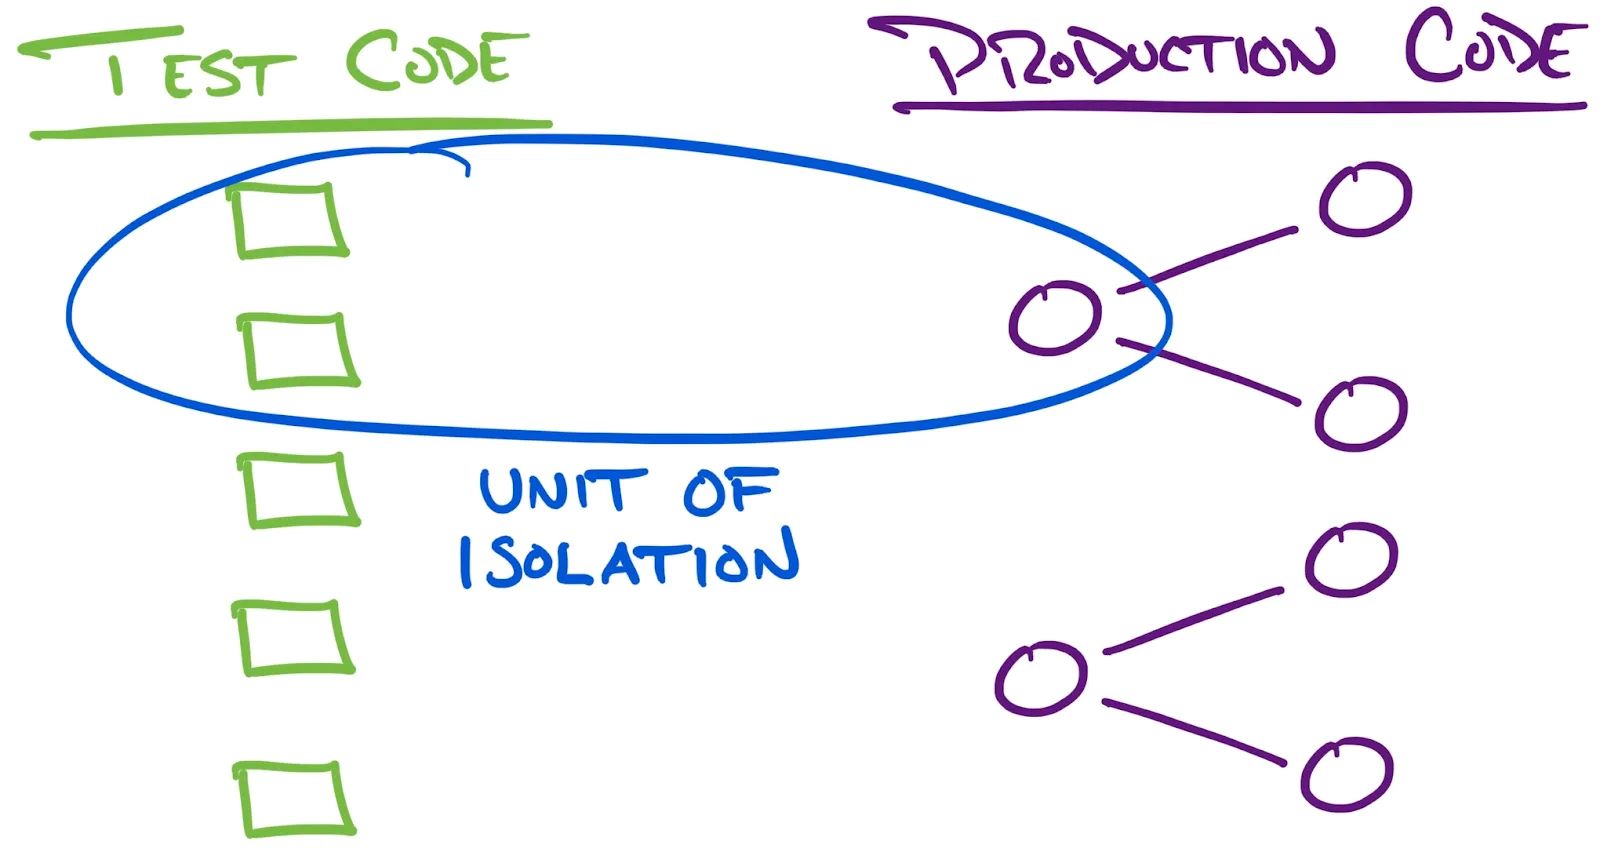 TEST CODE
PRODUCTION CODE
UNIT OF
ISOLATION